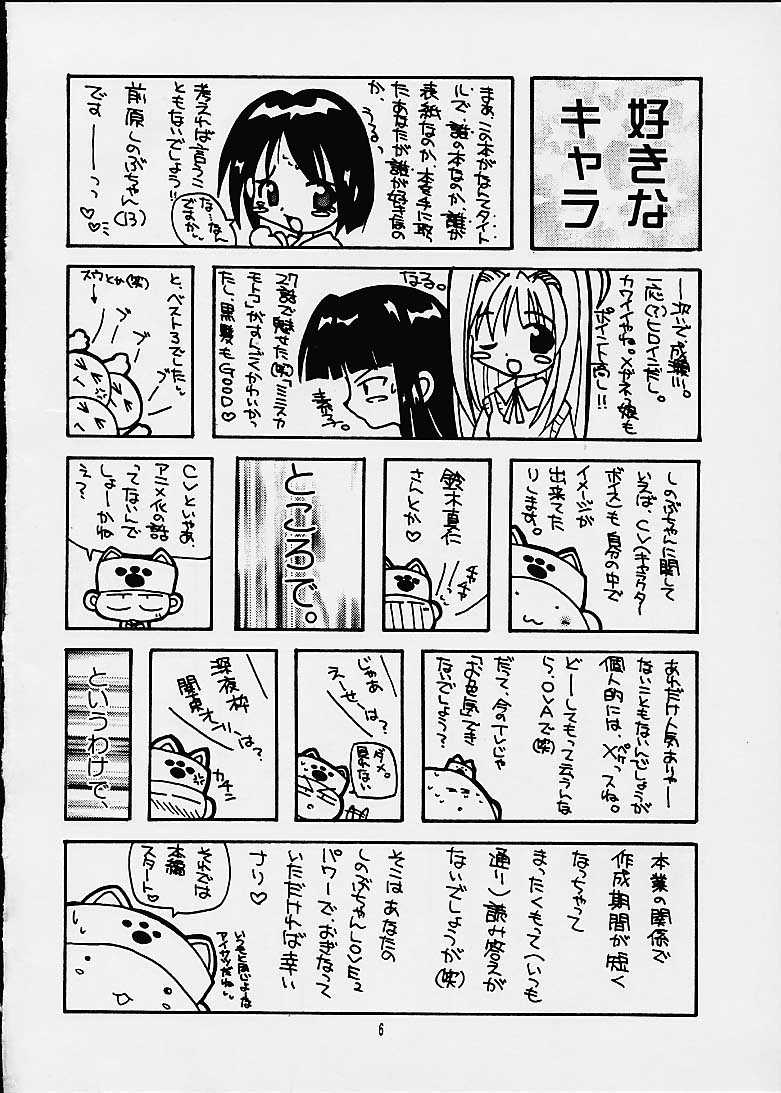 好きな
キャラ
まぁ、この本がなんてタイト
ルで、誰の本なのか、誰が
表紙なのか、本を手に取っ
たあなたが誰が好きなの
か、
うるっ
考えれば言うこ
ともないでしょう!!
な…なん
ですか〜
前原しのぶちゃん(13)
ですーーっっ♡♡
一次いで、成瀬川。
一応(?)ヒロインだし。
カワイイやね。メガネっ娘も
ポイント高し!!
なる。
7話で魅せた(笑)「ミニスカ
モトコ」がすんげぇかわいかっ
たし、黒髪もGOOD♡
素子。
と、ベスト3でした〜
スウとか(笑)
ブー
ブー
ブー
しのぶちゃんに関して
いえば、CV(キャラクター
ボイス)も自分の中で
イメージが
出来てた
りします。
鈴木真仁
さんとか♡
ところで。
CVといやぁ、
アニメ化の話
ってないんで
しょーかね
え?
あれだけ人気ありゃー
ないこともないんでしょうが
個人的には、ペケっスね。
どーしてもって云うんな
ら、OVAで(笑)
だって、今のTVじゃ
「お色気」でき
ないでしょう?
じゃあ
えーせーは?
ダメ。
見れない
深夜枠
関東オンリーは?
カチン
というわけで、
本業の関係で
作成期間が短く
なっちゃって
まったくもって(いつも
通り)読み答えが
ないでしょうが(笑)
そこはあなたの
しのぶちゃんLOVE2
パワーで、おぎなって
いただければ幸い
ナリ♡
それでは
本編
スタート♡
いつもと同じよーな
アイサツだね〜
6